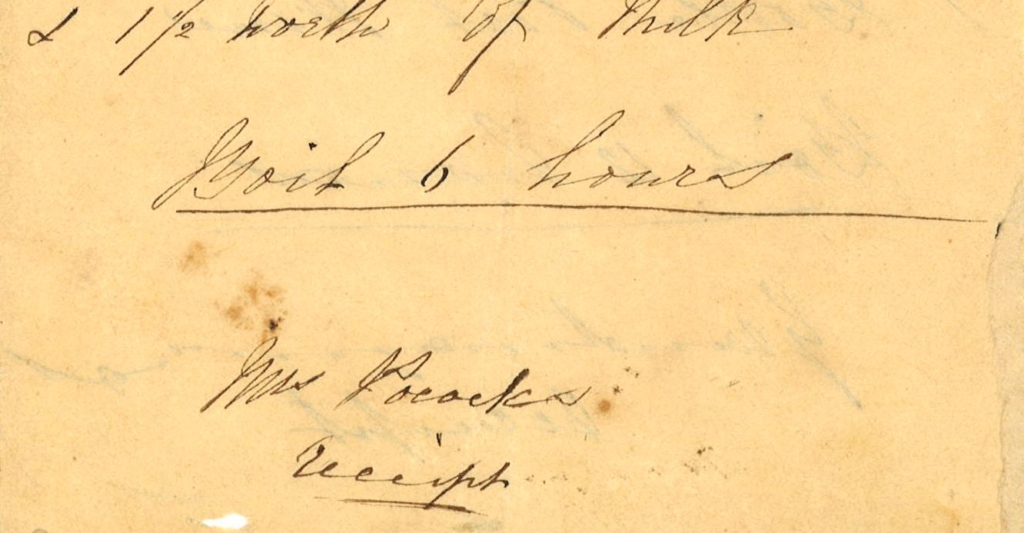 & 1½ worth of Milk
Boil 6 hours
Mrs Pococks
receipt